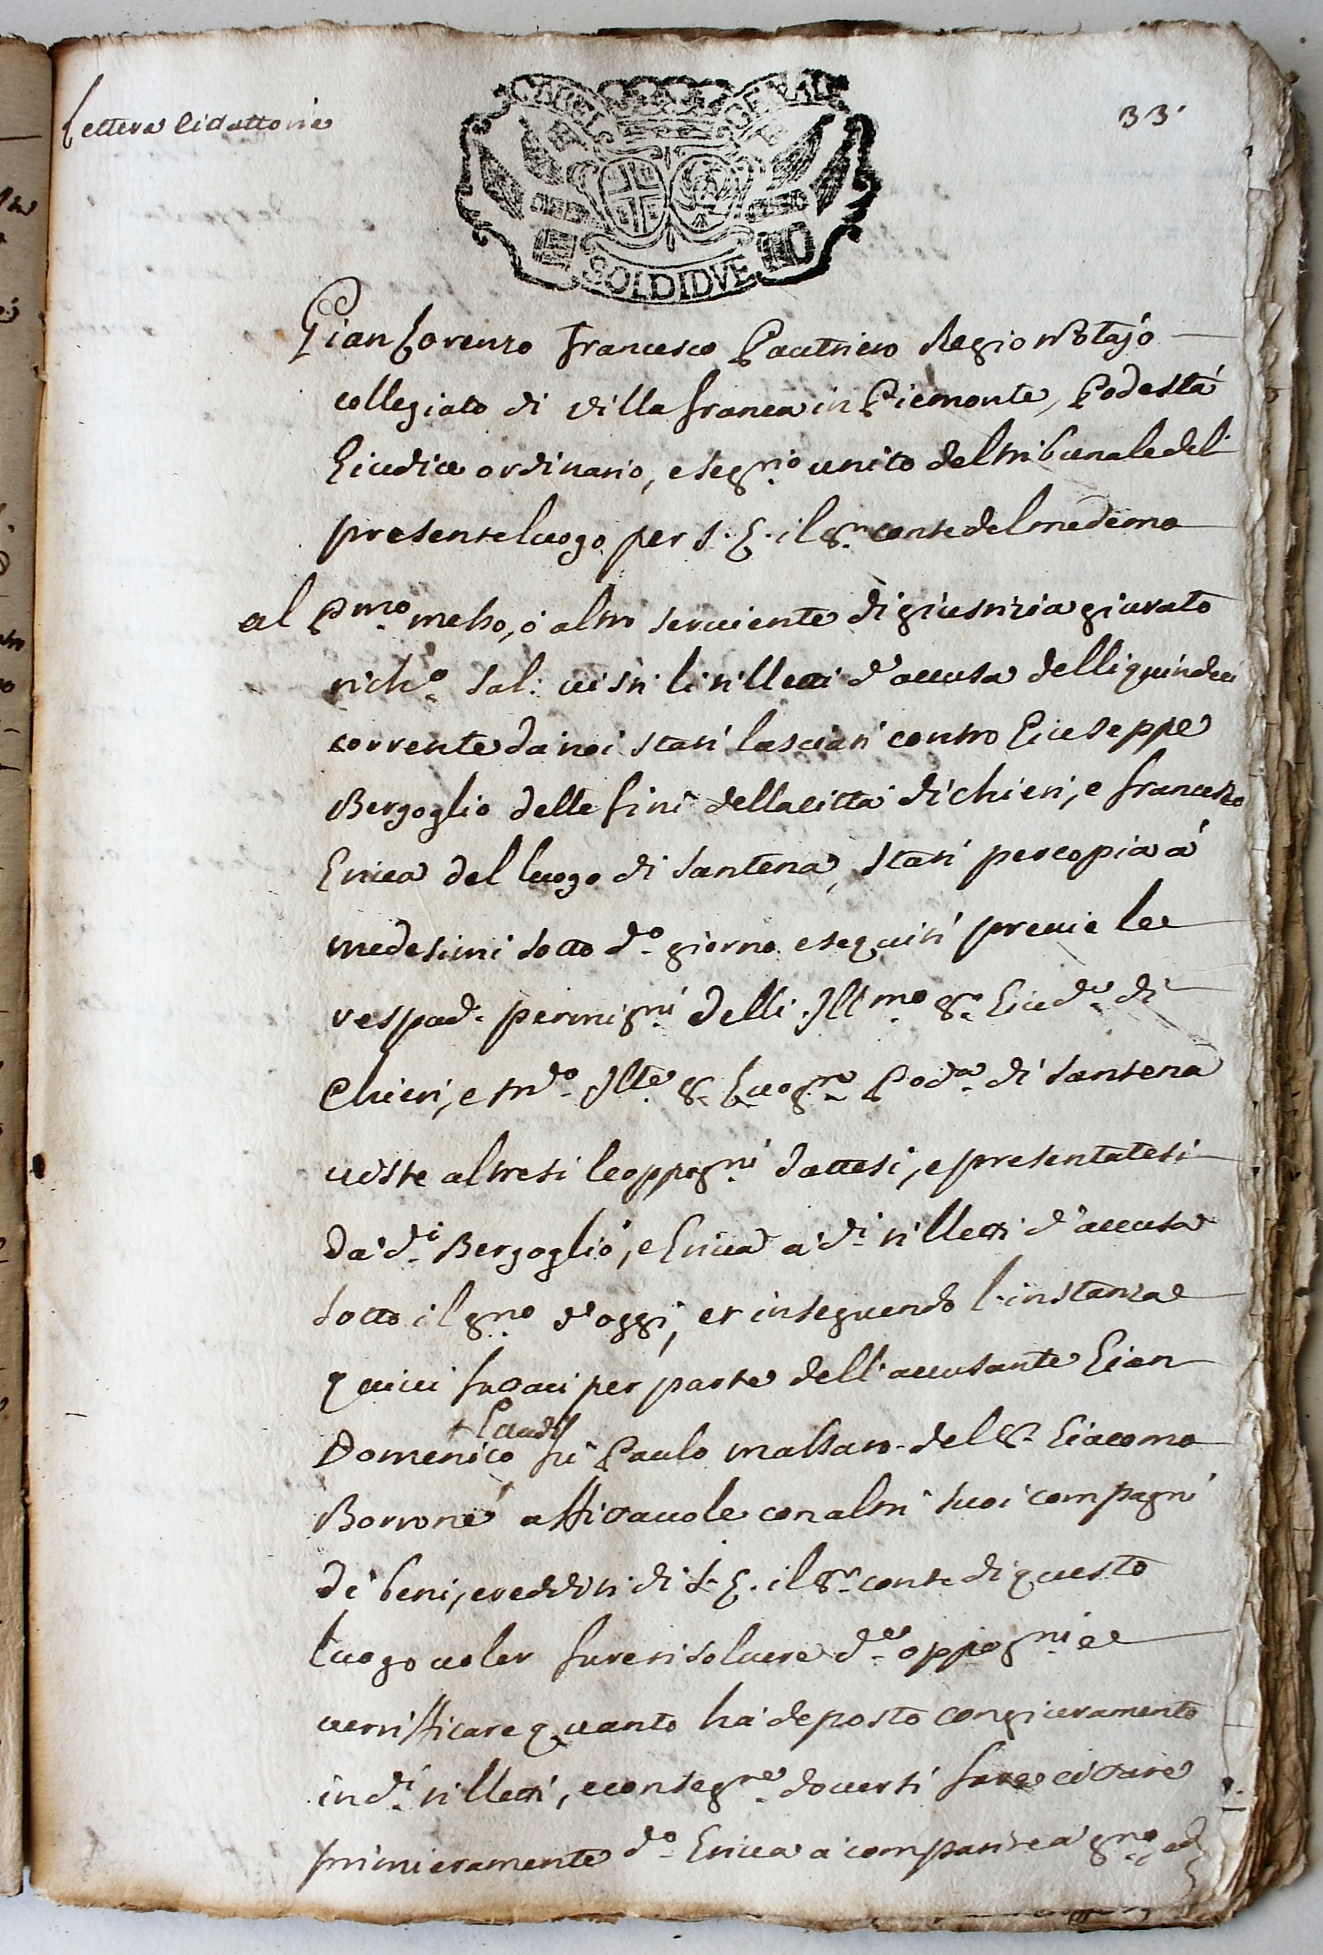 Lettera Citattoria
33
SOLDI DVE
Gian Lorenzo Francesco Regio Notajo
collegiato di villa franca in Piemonte, Podestà
Giudice ordinario, e segr.io unito del tribunale del
presente luogo per S. E. il Sr. conte del medemo
al P.mo messo, ò altro serviente di giustizia giurato
rich.o Sal: visti li rilletti d'accusa delli quindeci
corrente da noi stati lasciati contro Giuseppe
Bergoglio delle fini della città di Chieri, e Francesco
Enica del luogo di Santena, stati per copia à
medesimi sotto d.o giorno eseguiti previe le
permig.ni delli Ill.mo Sr. Giud.e di
Chieri, e m.do Ill.e Sr. Luog.te Pod.a di Santena
viste altresi le oppog.ni dattesi, e presentatesi
da d.i Bergoglio, e Enica a' d.i rilletti d'accusa
sotto il g.no d'oggi, et inseguendo l'instanza
quivi fattaci per parte dell'accusante Gian
Domenico fù Paulo massaro del Sr. Giacomo
Borrone affittavole con altri suoi compagni
de beni, e redditi di S. E. il Sr. conte di questo
luogo voler fare risolvere d.e oppog.ni e
verifficare quanto hà deposto con giuramento
in d.i rilletti, e conseg.te doversi fare cittare
primieramente d.o Enica à comparire a g.no, ed